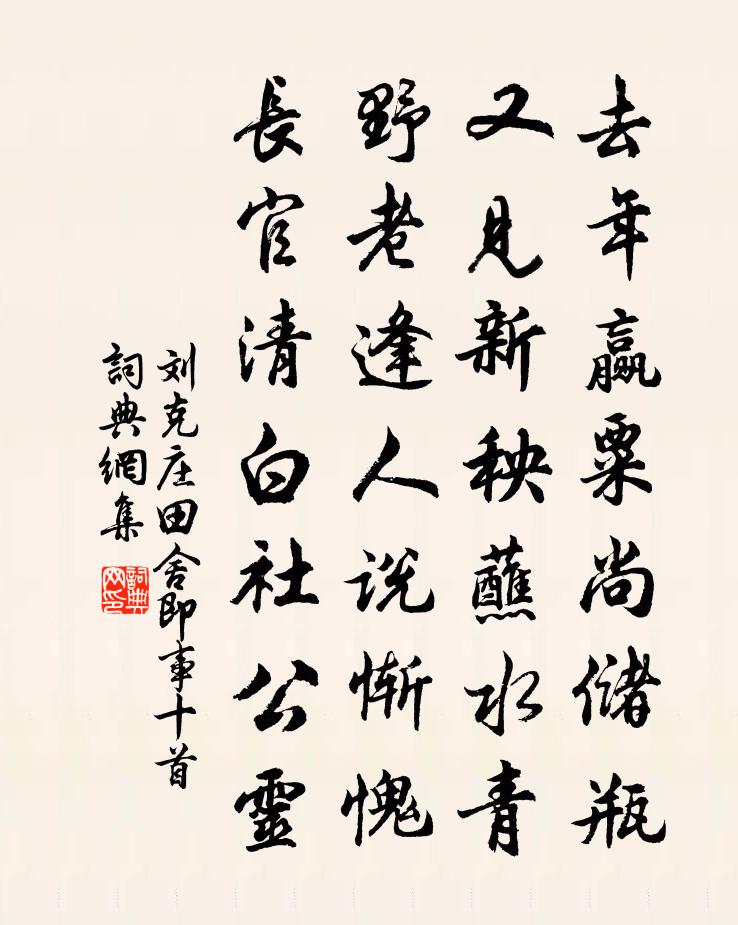 去年贏粟尚儲瓶
又見新秧蘸水青
野老逢人说惭愧
長官清白社公靈
刘克庄田舍即事十首
詞典網集
詞典网印